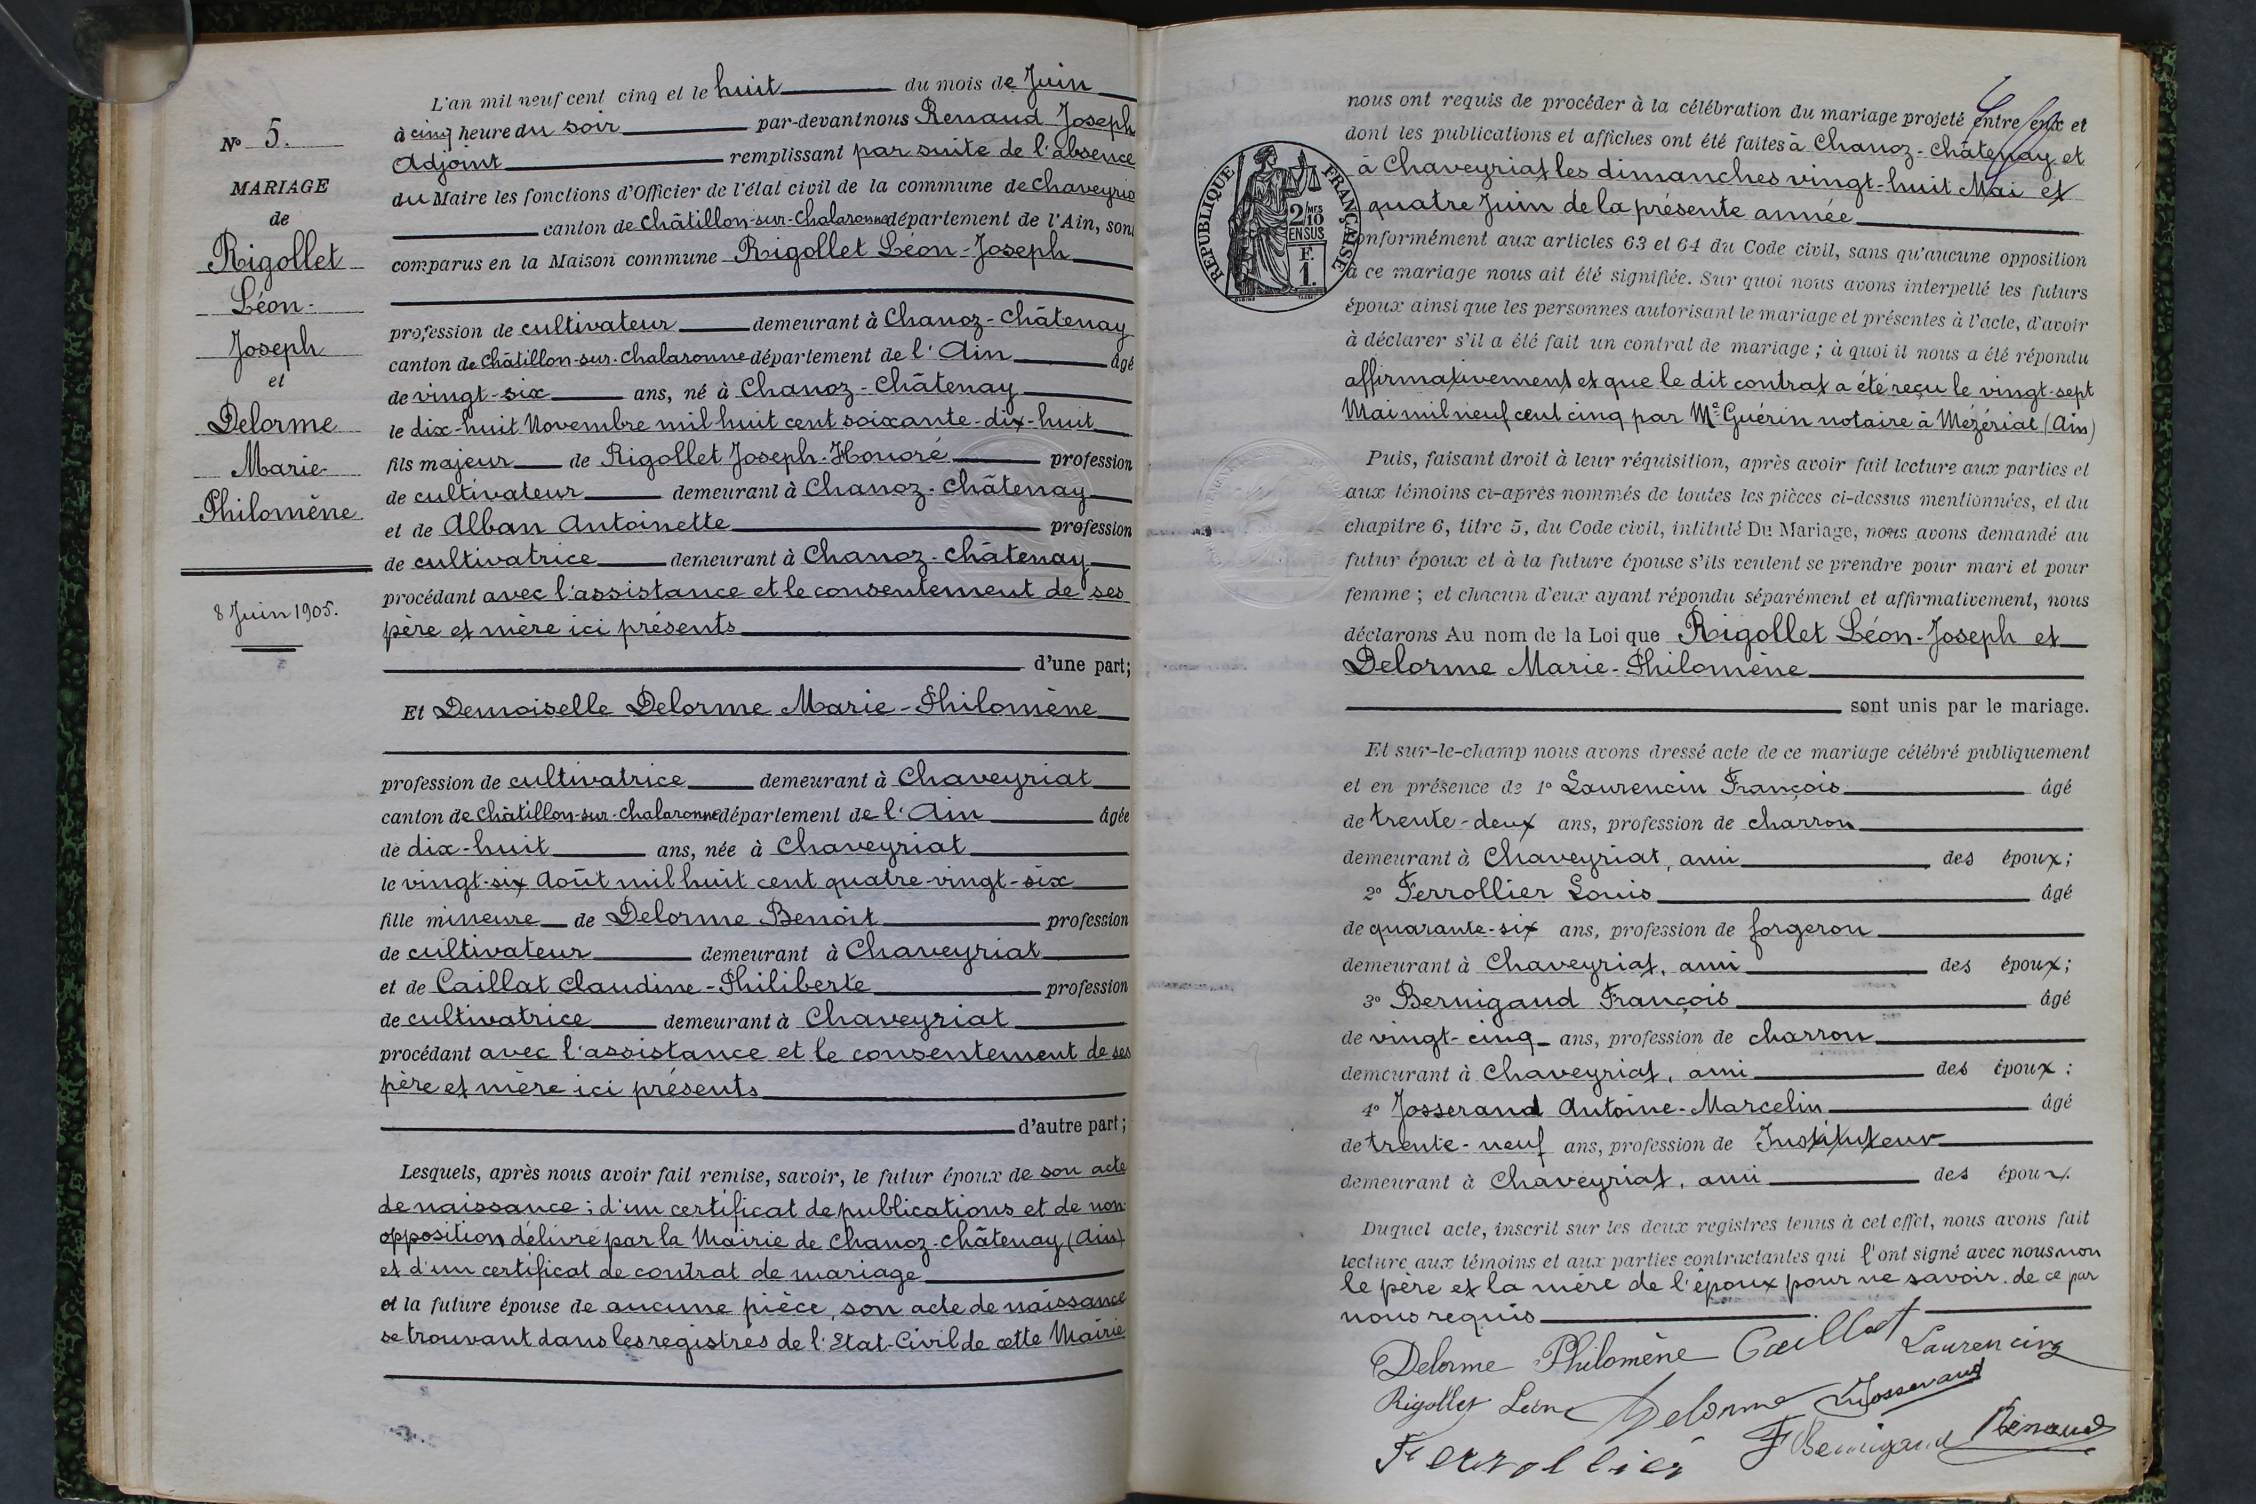 L'an mil neuf cent cinq et le huit du mois de Juin
à cinq heure du soir par-devant nous Renaud Joseph
Adjoint remplissant par suite de l'absence
du Maire les fonctions d'Officier de l'état civil de la commune de Chaveyria
canton de Châtillon-sur-Chalaronne département de l'Ain, son
comparus en la Maison commune Rigollet Léon-Joseph
profession de cultivateur demeurant à Chanoz-Châtenay
canton de Châtillon-sur-Chalaronne département de l'Ain âgé
de vingt-six ans, né à Chanoz-Châtenay
le dix-huit Novembre mil huit cent soixante-dix-huit
fils majeur de Rigollet Joseph-Honoré profession
de cultivateur demeurant à Chanoz-Châtenay
et de Alban Antoinette profession
de cultivatrice demeurant à Chanoz-Châtenay
procédant avec l'assistance et le consentement de ses
père et mère ici présents
d'une part;
Et Demoiselle Delorme Marie-Philomène
profession de cultivatrice demeurant à Chaveyriat
canton de Châtillon-sur-Chalaronne département de l'Ain âgée
de dix-huit ans, née à Chaveyriat
le vingt-six Août mil huit cent quatre-vingt-six
fille mineure de Delorme Benoît profession
de cultivateur demeurant à Chaveyriat
et de Caillat Claudine-Philiberte profession
de cultivatrice demeurant à Chaveyriat
procédant avec l'assistance et le consentement de ses
père et mère ici présents
d'autre part;
Lesquels, après nous avoir fait remise, savoir, le futur époux de son acte
de naissance; d'un certificat de publications et de non-
opposition délivré par la Mairie de Chanoz-Châtenay (Ain)
et d'un certificat de contrat de mariage
et la future épouse de aucune pièce, son acte de naissance
se trouvant dans les registres de l'Etat-Civil de cette Mairie
No 5.
MARIAGE
de
Rigollet
Léon-
Joseph
et
Delorme
Marie-
Philomène
8 Juin 1905.
nous ont requis de procéder à la célébration du mariage projeté entre eux et
dont les publications et affiches ont été faites à Chanoz-Châtenay et
à Chaveyriat les dimanches vingt-huit Mai et
quatre Juin de la présente année
conformément aux articles 63 et 64 du Code civil, sans qu'aucune opposition
à ce mariage nous ait été signifiée. Sur quoi nous avons interpellé les futurs
époux ainsi que les personnes autorisant le mariage et présentes à l'acte, d'avoir
à déclarer s'il a été fait un contrat de mariage; à quoi il nous a été répondu
affirmativement et que le dit contrat a été reçu le vingt-sept
Mai mil neuf cent cinq par Me Guérin notaire à Mézériat (Ain)
Puis, faisant droit à leur réquisition, après avoir fait lecture aux parties et
aux témoins ci-après nommés de toutes les pièces ci-dessus mentionnées, et du
chapitre 6, titre 5, du Code civil, intitulé Du Mariage, nous avons demandé au
futur époux et à la future épouse s'ils veulent se prendre pour mari et pour
femme; et chacun d'eux ayant répondu séparément et affirmativement, nous
déclarons Au nom de la Loi que Rigollet Léon-Joseph et
Delorme Marie-Philomène
sont unis par le mariage.
Et sur-le-champ nous avons dressé acte de ce mariage célébré publiquement
et en présence de 1° Laurencin François âgé
de trente-deux ans, profession de charron
demeurant à Chaveyriat, ami des époux;
2° Ferrollier Louis âgé
de quarante-six ans, profession de forgeron
demeurant à Chaveyriat, ami des époux;
3° Bernigaud François âgé
de vingt-cinq ans, profession de charron
demeurant à Chaveyriat, ami des époux;
4° Josserand Antoine-Marcelin âgé
de trente-neuf ans, profession de Instituteur
demeurant à Chaveyriat, ami des époux.
Duquel acte, inscrit sur les deux registres tenus à cet effet, nous avons fait
lecture aux témoins et aux parties contractantes qui l'ont signé avec nous non
le père et la mère de l'époux pour ne savoir. de ce par
nous requis
Delorme Philomène Caillat Laurencin
Rigollet Léon Delorme Josserand
Ferrollier F Bernigaud Renaud
RÉPUBLIQUE FRANÇAISE
2/10 MES
EN SUS
F.
1.